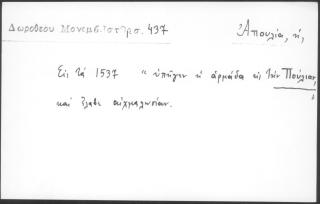 Δωροθέου Μονεμβ. Ιστορ σ. 437
Ἀπουλία, ἡ,
Εἰς τὰ 1537 " ὑπῆγεν ἡ ἀρμάδα εἰς τὴν Πούλιαν,
καὶ ἔλαβε αἰχμαλωσίαν.